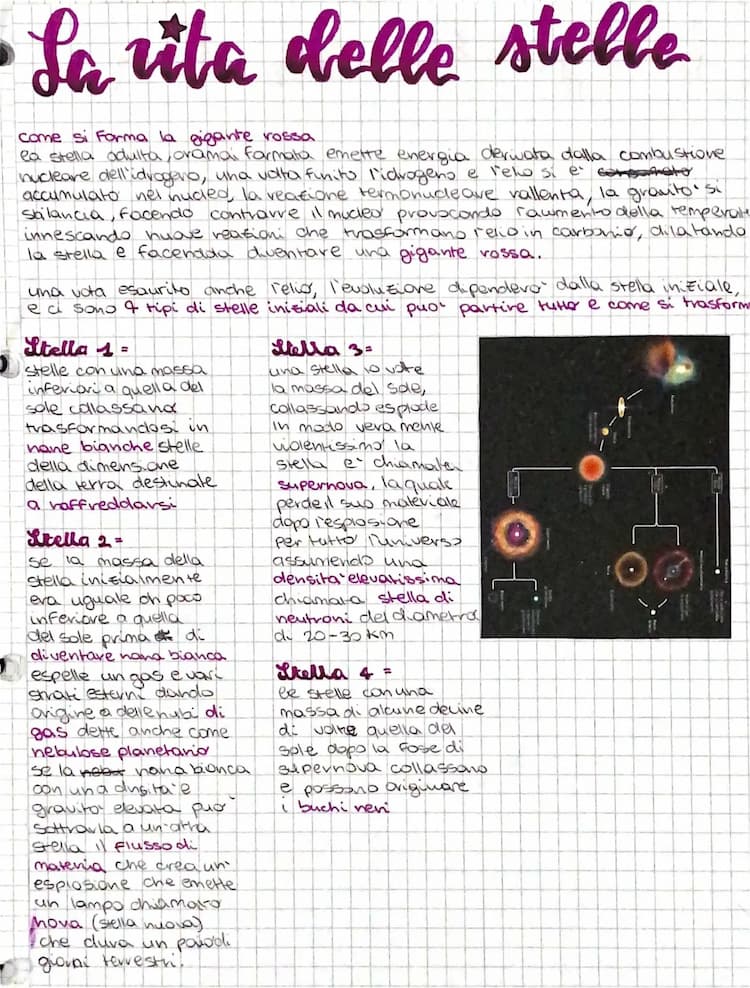 La vita delle stelle
come si forma la gigante rossa
la stella adulta, oramai formata emette energia derivata dalla combustione
nucleare dell'idrogeno, una volta finito l'idrogeno e l'elio si e'
accumulato nel nucleo, la reazione termonucleare rallenta, la gravita' si
sbilancia, facendo contrarre il nucleo provocando l'aumento della temperat
innescando nuove reazioni che trasformano l'elio in carbonio, dilatando
la stella e facendola diventare una gigante rossa.
una vota esaurito anche l'elio, l'evoluzione dipendera' dalla stella iniziale,
e ci sono 4 tipi di stelle iniziali da cui puo' partire tutto e come si trasform
Stella 1 =
stelle con una massa
inferiori a quella del
sole collassano
trasformandosi in
nane bianche stelle
della dimensione
della terra destinate
a raffreddarsi
Stella 2 =
se la massa della
stella inizialmente
era uguale o poco
inferiore a quella
del sole prima di
diventare nana bianca
espelle un gas e vari
strati esterni dando
origine a delle nubi di
gas dette anche come
nebulose planetario
se la nana bianca
con una dnsita' e
gravita' elevata puo'
sottrarla a un'altra
stella il flusso di
materia che crea un'
esplosione che emette
un lampo chiamato
nova (stella nuova)
che dura un paio di
giorni terrestri.
Stella 3 =
una stella 10 volte
la massa del sole,
collassando esplode
in modo vera mente
violentissimo la
stella e' chiamata
supernova, la quale
perde il suo materiale
dopo l'esplosione
per tutto l'universo
assumendo una
densita' elevatissima
chiamata stella di
neutroni del diametro
di 20-30 km
Stella 4 =
le stelle con una
massa di alcune decine
di volte quella del
sole dopo la fase di
supernova collassano
e possono originare
i buchi neri